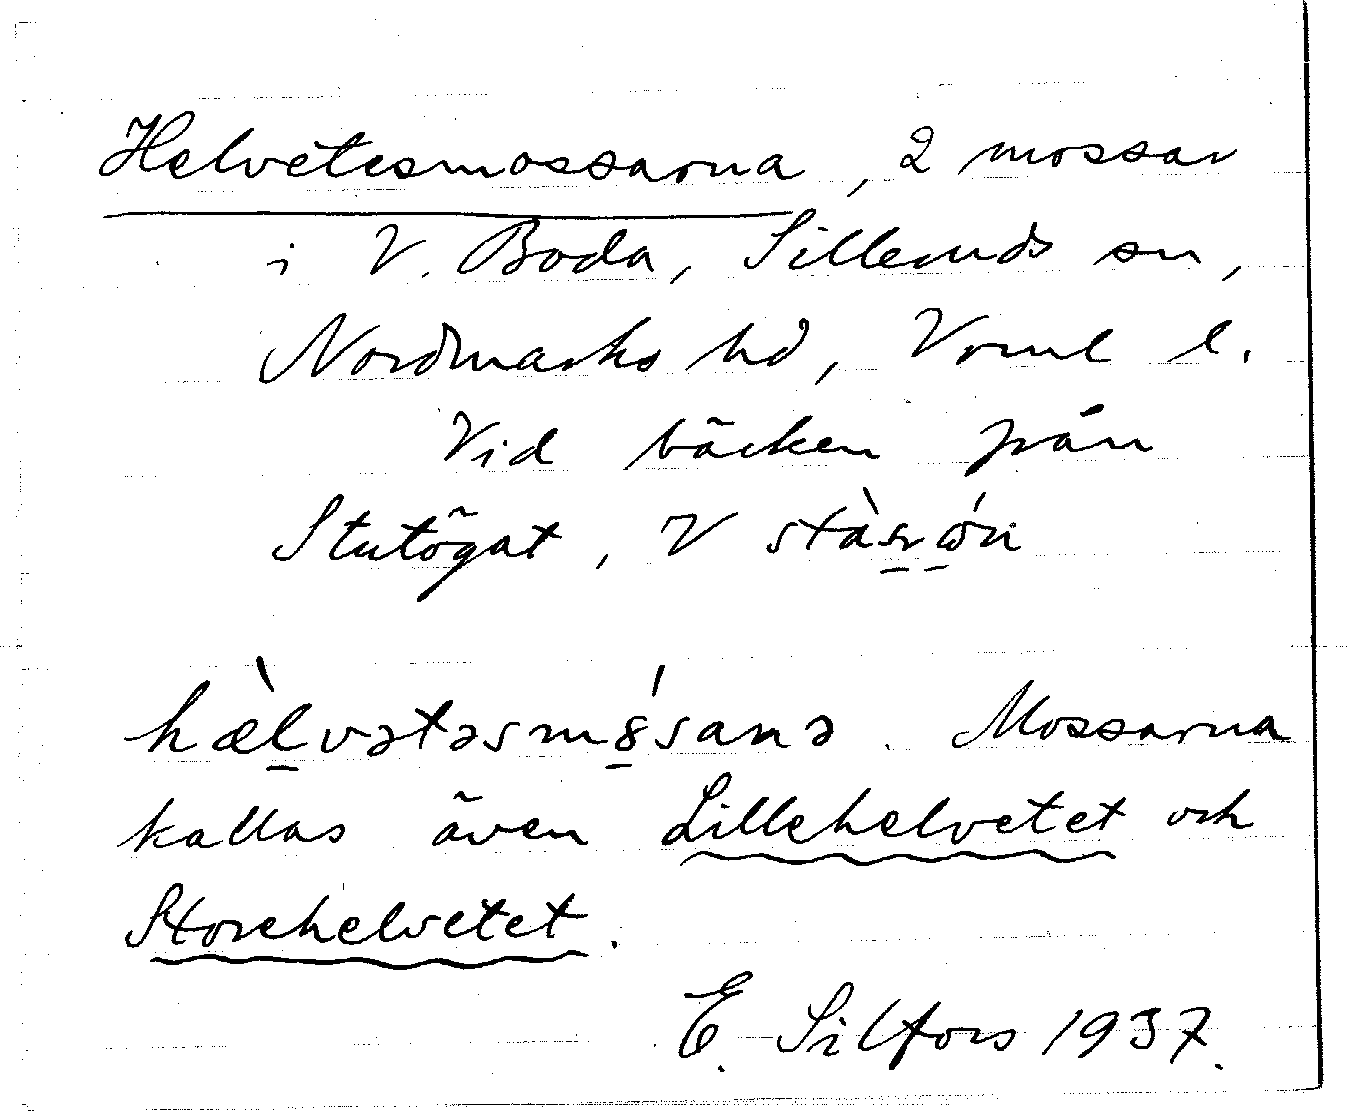 Helvetesmossarna, 2 mossar
i V. Boda, Silleruds sn,
Nordmarks hd, Vrml l.
Vid bäcken från
Stutögat, V
hæ̀lvətəsmśsanə. Mossarna
kallas även Lillehelvetet och
Storehelvetet.
E. Silfors 1937.